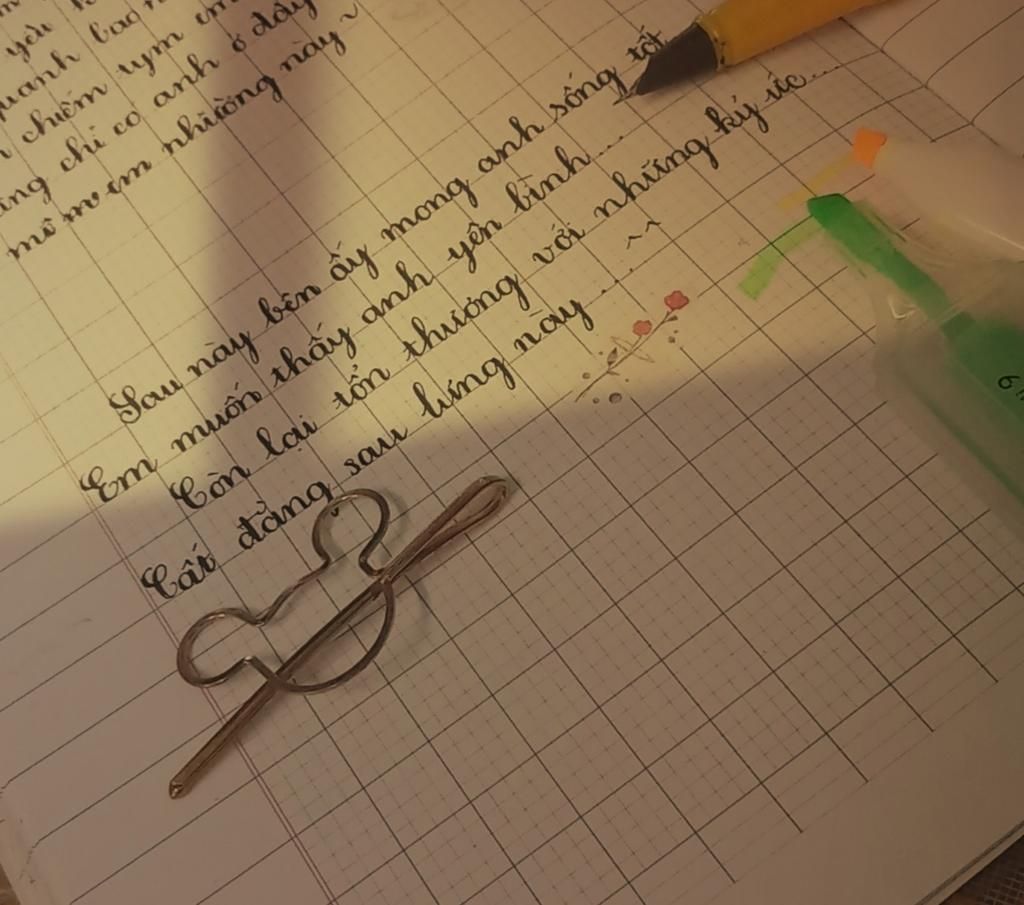 yêu
quanh bao
chiếm trọn em
chỉ có anh ở đây
em nhường này ~
Sau này bên ấy mong anh sống tốt
Em muốn thấy anh yên bình...
Còn lại tổn thương với những ký ức...
Cất đằng sau lưng này... ^^
6